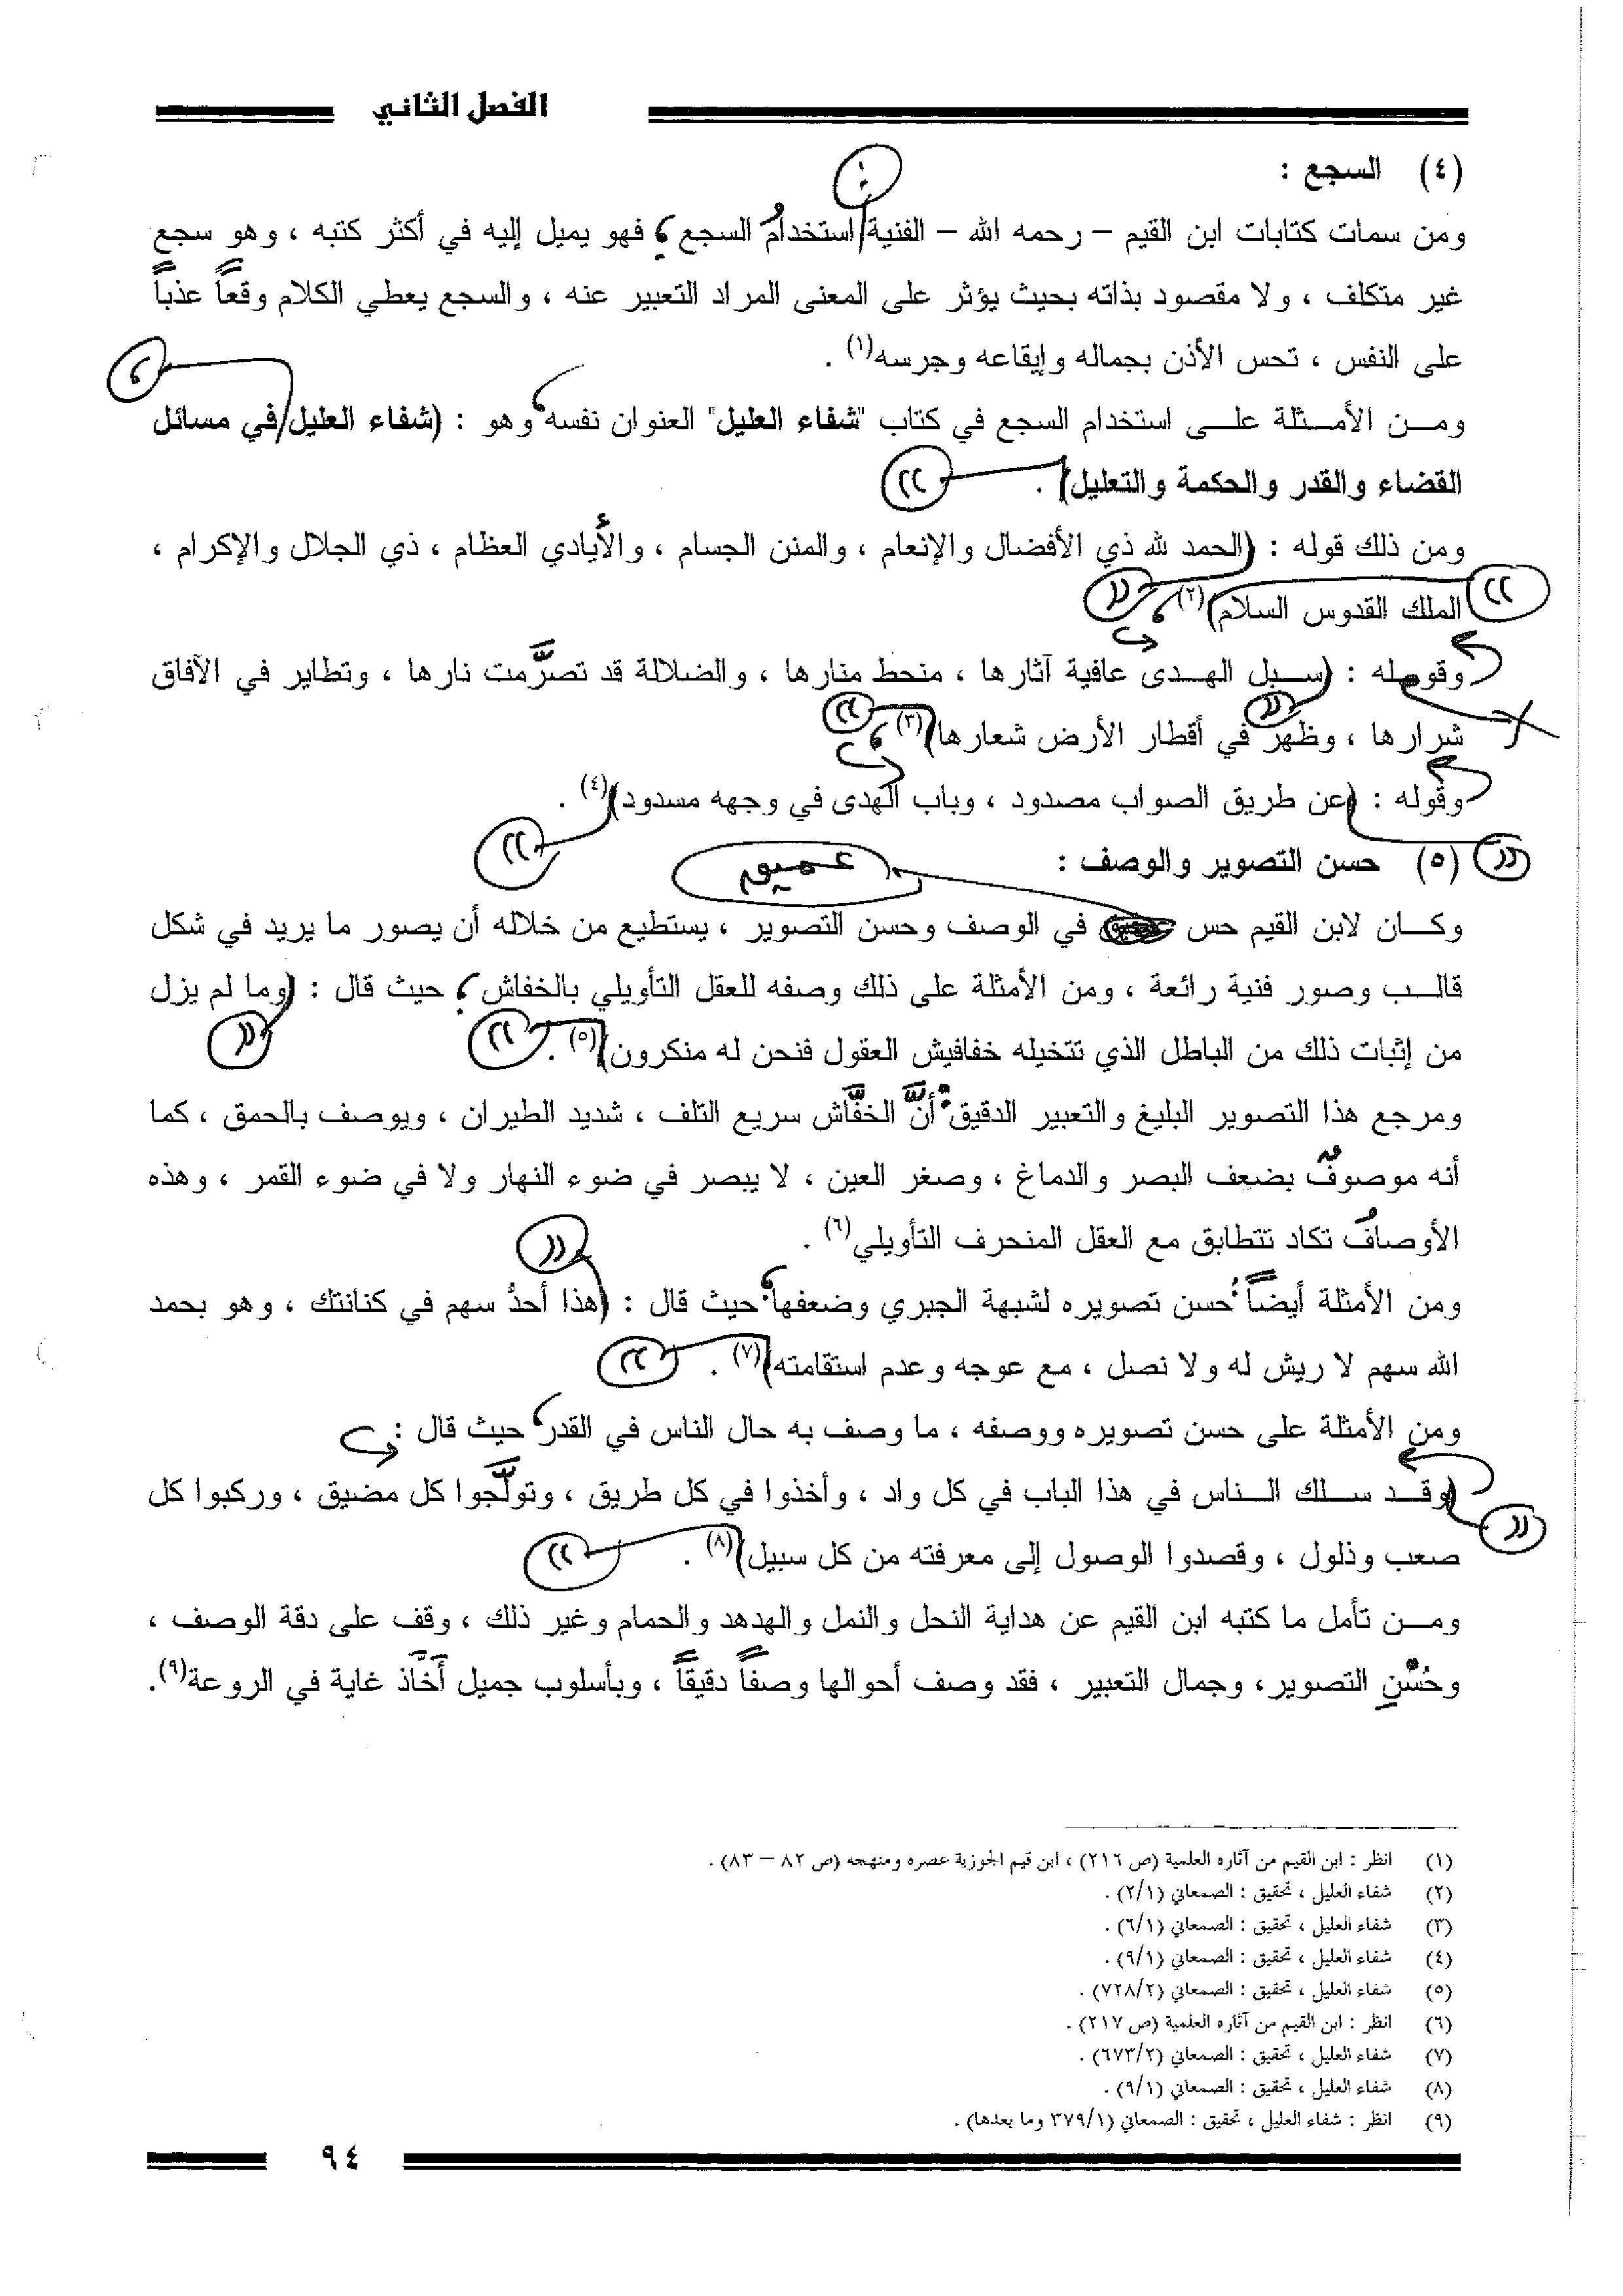 الفصل الثاني
(٤) السجع :
ومن سمات كتابات ابن القيم – رحمه الله – الفنية استخدامُ السجع ؛ فهو يميل إليه في أكثر كتبه ، وهو سجع
غير متكلف ، ولا مقصود بذاته بحيث يؤثر على المعنى المراد التعبير عنه ، والسجع يعطي الكلام وقعاً عذباً
على النفس ، تحس الأذن بجماله وإيقاعه وجرسه(١) .
ومن الأمثلة على استخدام السجع في كتاب "شفاء العليل" العنوان نفسه، وهو : (شفاء العليل في مسائل
القضاء والقدر والحكمة والتعليل) .
ومن ذلك قوله : (الحمد لله ذي الأفضال والإنعام ، والمنن الجسام ، والأيادي العظام ، ذي الجلال والإكرام ،
الملك القدوس السلام)(٢) ،
وقوله : (سبل الهدى عافية آثارها ، منحط منارها ، والضلالة قد تصرَّمت نارها ، وتطاير في الآفاق
شرارها ، وظهر في أقطار الأرض شعارها)(٣) ،
وقوله : (عن طريق الصواب مصدود ، وباب الهدى في وجهه مسدود)(٤) .
(٥) حسن التصوير والوصف :
عميق
وكان لابن القيم حس في الوصف وحسن التصوير ، يستطيع من خلاله أن يصور ما يريد في شكل
قالب وصور فنية رائعة ، ومن الأمثلة على ذلك وصفه للعقل التأويلي بالخفاش ؛ حيث قال : (وما لم يزل
من إثبات ذلك من الباطل الذي تتخيله خفافيش العقول فنحن له منكرون)(٥) .
ومرجع هذا التصوير البليغ والتعبير الدقيق: أنَّ الخفَّاش سريع التلف ، شديد الطيران ، ويوصف بالحمق ، كما
أنه موصوفٌ بضعف البصر والدماغ ، وصغر العين ، لا يبصر في ضوء النهار ولا في ضوء القمر ، وهذه
الأوصافُ تكاد تتطابق مع العقل المنحرف التأويلي(٦) .
ومن الأمثلة أيضاً: حُسن تصويره لشبهة الجبري وضعفها؛ حيث قال : (هذا أحدُّ سهم في كنانتك ، وهو بحمد
الله سهم لا ريش له ولا نصل ، مع عوجه وعدم استقامته)(٧) .
ومن الأمثلة على حسن تصويره ووصفه ، ما وصف به حال الناس في القدر، حيث قال :
(وقد سلك الناس في هذا الباب في كل واد ، وأخذوا في كل طريق ، وتولَّجوا كل مضيق ، وركبوا كل
صعب وذلول ، وقصدوا الوصول إلى معرفته من كل سبيل)(٨) .
ومن تأمل ما كتبه ابن القيم عن هداية النحل والنمل والهدهد والحمام وغير ذلك ، وقف على دقة الوصف ،
وحُسْنِ التصوير، وجمال التعبير ، فقد وصف أحوالها وصفاً دقيقاً ، وبأسلوب جميل أخَّاذ غاية في الروعة(٩).
(١) انظر : ابن القيم من آثاره العلمية (ص ٢١٦) ، ابن قيم الجوزية عصره ومنهجه (ص ٨٢ – ٨٣) .
(٢) شفاء العليل ، تحقيق : الصمعاني (٢/١) .
(٣) شفاء العليل ، تحقيق : الصمعاني (٦/١) .
(٤) شفاء العليل ، تحقيق : الصمعاني (٩/١) .
(٥) شفاء العليل ، تحقيق : الصمعاني (٧٢٨/٢) .
(٦) انظر : ابن القيم من آثاره العلمية (ص ٢١٧) .
(٧) شفاء العليل ، تحقيق : الصمعاني (٦٧٣/٢) .
(٨) شفاء العليل ، تحقيق : الصمعاني (٩/١) .
(٩) انظر : شفاء العليل ، تحقيق : الصمعاني (٣٧٩/١ وما بعدها) .
٩٤